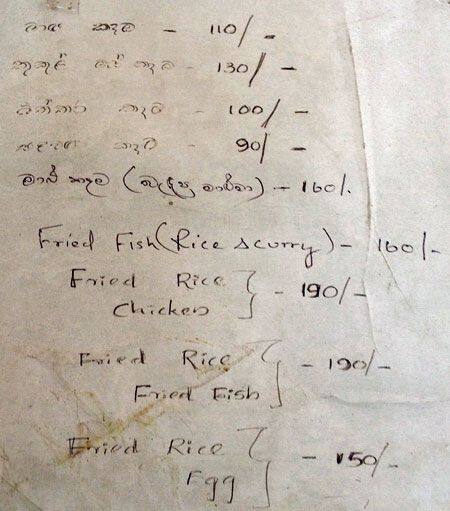 මාළු කෑම - 110/-
කුකුළ් මස් කෑම - 130/-
බිත්තර කෑම - 100/-
එළවළු කෑම - 90/-
මාළු කෑම (බැදපු මාළු) - 160/.
Fried Fish (Rice & curry) - 160/-
Fried Rice
Chicken - 190/-
Fried Rice
Fried Fish - 190/-
Fried Rice
Egg - 150/-